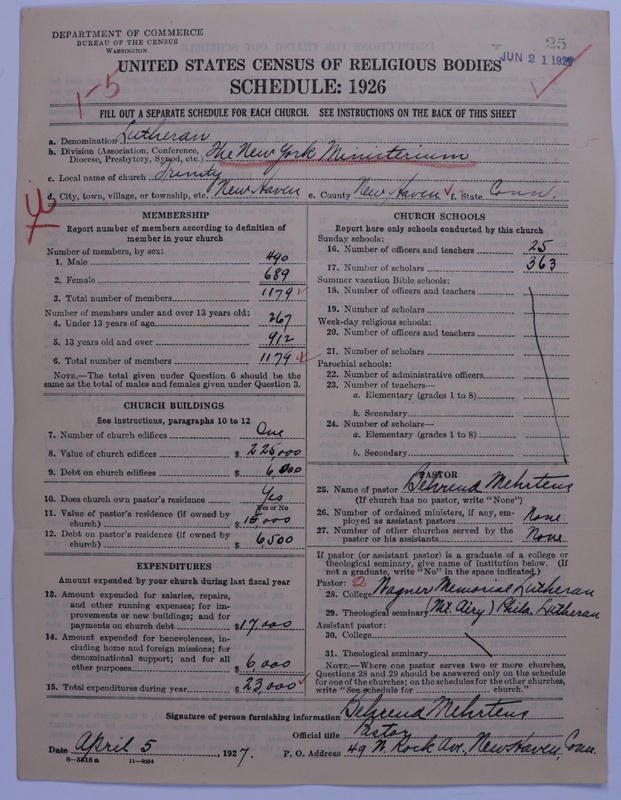 DEPARTMENT OF COMMERCE
BUREAU OF THE CENSUS
WASHINGTON
25
JUN 21 1927
UNITED STATES CENSUS OF RELIGIOUS BODIES
SCHEDULE: 1926
1-5
FILL OUT A SEPARATE SCHEDULE FOR EACH CHURCH. SEE INSTRUCTIONS ON THE BACK OF THIS SHEET
a. Denomination Lutheran
b. Division (Association, Conference, Diocese, Presbytery, Synod, etc.) The New York Ministerium
c. Local name of church Trinity
d. City, town, village, or township, etc. New Haven e. County New Haven f. State Conn.
MEMBERSHIP
Report number of members according to definition of member in your church
Number of members, by sex:
1. Male 490
2. Female 689
3. Total number of members 1179
Number of members under and over 13 years old:
4. Under 13 years of age 267
5. 13 years old and over 912
6. Total number of members 1179
NOTE.—The total given under Question 6 should be the same as the total of males and females given under Question 3.
CHURCH BUILDINGS
See instructions, paragraphs 10 to 12
7. Number of church edifices One
8. Value of church edifices $ 225,000
9. Debt on church edifices $ 6,000
10. Does church own pastor's residence Yes
Yes or No
11. Value of pastor's residence (if owned by church) $ 15,000
12. Debt on pastor's residence (if owned by church) $ 6,500
EXPENDITURES
Amount expended by your church during last fiscal year
13. Amount expended for salaries, repairs, and other running expenses; for improvements or new buildings; and for payments on church debt $ 17,000
14. Amount expended for benevolences, including home and foreign missions; for denominational support; and for all other purposes $ 6,000
15. Total expenditures during year $ 23,000
CHURCH SCHOOLS
Report here only schools conducted by this church
Sunday schools:
16. Number of officers and teachers 25
17. Number of scholars 363
Summer vacation Bible schools:
18. Number of officers and teachers
19. Number of scholars
Week-day religious schools:
20. Number of officers and teachers
21. Number of scholars
Parochial schools:
22. Number of administrative officers
23. Number of teachers—
a. Elementary (grades 1 to 8)
b. Secondary
24. Number of scholars—
a. Elementary (grades 1 to 8)
b. Secondary
PASTOR
25. Name of pastor Behrend Mehrtens
(If church has no pastor, write "None")
26. Number of ordained ministers, if any, employed as assistant pastors None
27. Number of other churches served by the pastor or his assistants None
If pastor (or assistant pastor) is a graduate of a college or theological seminary, give name of institution below. (If not a graduate, write "No" in the space indicated.)
Pastor: 2
28. College Wagner Memorial Lutheran
29. Theological seminary (Mt. Airy) Phila. Lutheran
Assistant pastor:
30. College
31. Theological seminary
NOTE.—Where one pastor serves two or more churches, Questions 28 and 29 should be answered only on the schedule for one of the churches; on the schedules for the other churches, write "See schedule for church."
Signature of person furnishing information Behrend Mehrtens
Official title Pastor
Date April 5, 1927. P. O. Address 49 W. Rock Ave., New Haven, Conn.
8—3318a 11—9034